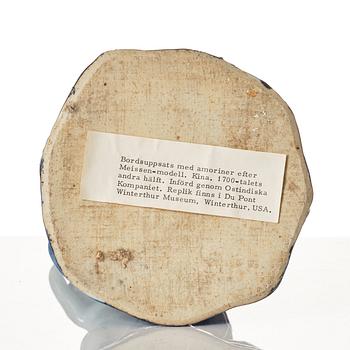 Bordsuppsats med amoriner efter
Meissen-modell. Kina, 1700-talets
andra hälft. Införd genom Ostindiska
Kompaniet. Replik finns i Du Pont
Winterthur Museum, Winterthur, USA.